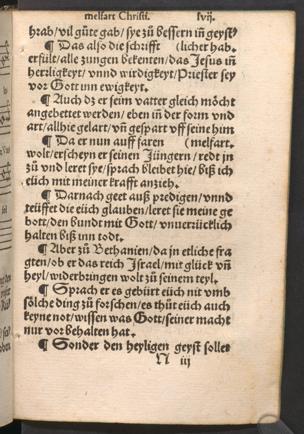 melfart Christi. lvij.
hrab/vil gůte gab/sye zů bessern im geyst?
¶ Das also die schrifft (licher hab.
erfült/alle zungen bekenten/das Jesus in
herligkeyt/vnnd wirdigkeyt/Priester sey
vor Gott im ewigkeyt.
¶ Auch dz er seim vatter gleich möcht
angebettet werden/eben in der form vnd
art/allhie gelart/vñ gespart vff seine him
¶ Da er nun auff faren (melfart.
wolt/erscheyn er seinen Jüngern/redt in
zů vnd leret sye/sprach bleibet hie/biß ich
eüch mit meiner krafft anzieh.
¶ Darnach geet auß predigen/vnnd
teüffet die eüch glauben/leret sie meine ge
bott/den bundt mit Gott/vnuerrücklich
halten biß inn todt.
¶ Aber zů Bethanien/da in etliche fra
gten/ob er das reich Israel/mit glück vñ
heyl/widerbringen wolt zů seinem teyl.
¶ Sprach er es gebürt eüch nit vmb
sölche ding zů forschen/es thůt eüch auch
keyne not/wissen was Gott/seiner macht
nur vor behalten hat.
¶ Sonder den heyligen geyst sollet
N iij